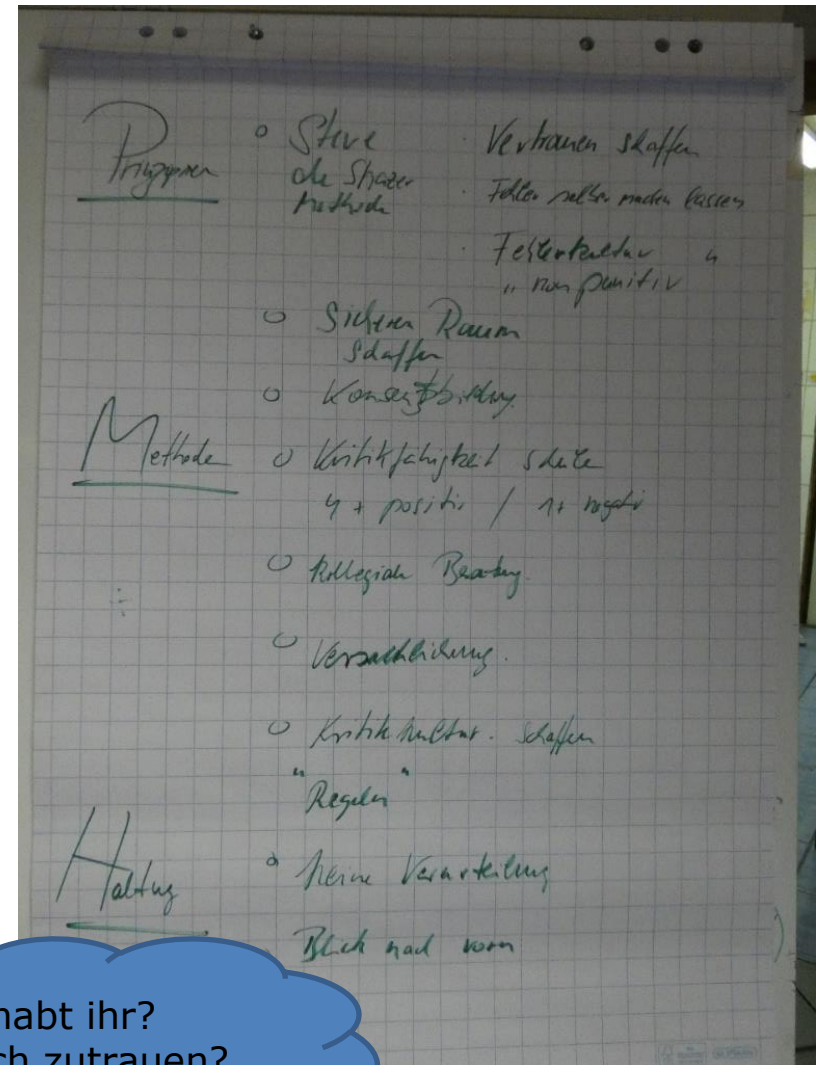 Prinzipien
○ Steve
de Shazer
Methode
· Vertrauen schaffen
· Fehler selber machen lassen
· Fehlerkultur "
" non punitiv
○ Sicheren Raum
schaffen
○ Konsensbildung
Methode
○ Kritikfähigkeit
4 + positiv / 1+ negativ
○ Kollegiale Beratung.
○ Versachlichung.
○ Kritikkultur. schaffen
"Regeln"
Haltung
○ keine Verurteilung
Blick nach vorn
habt ihr?
ch zutrauen?